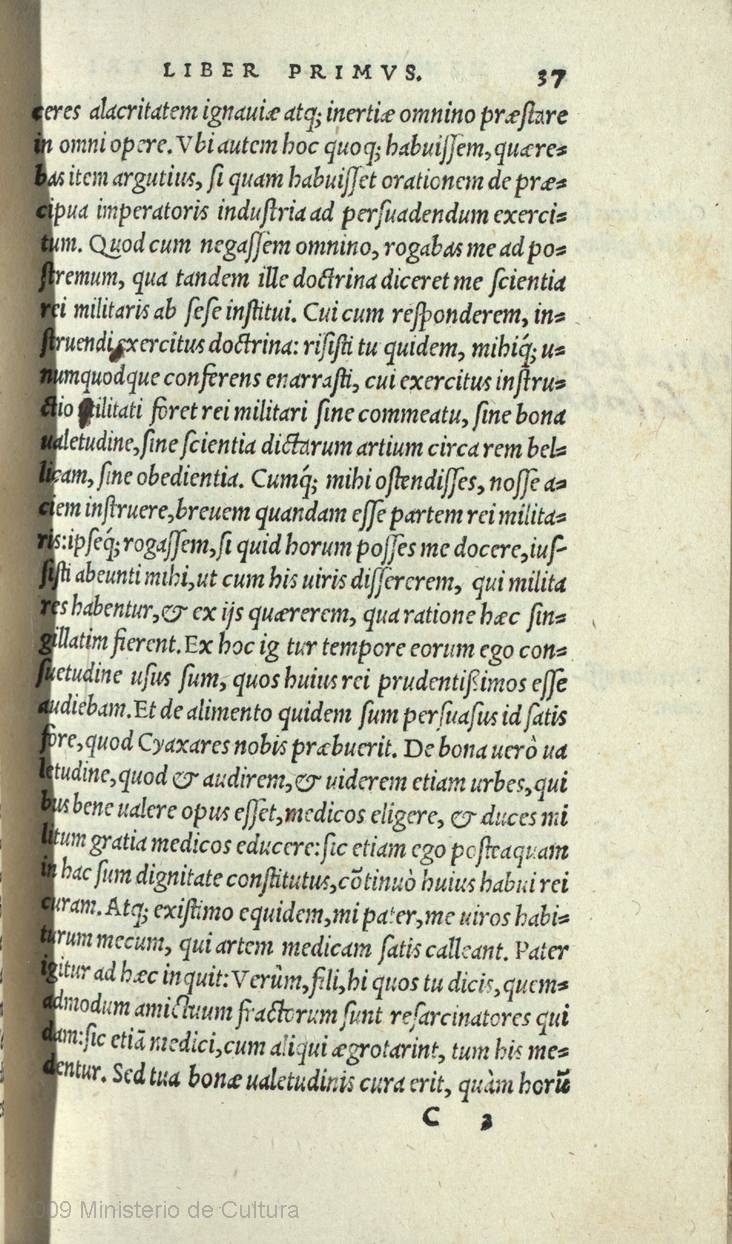 LIBER PRIMVS. 37
ceres alacritatem ignauiæ atq; inertiæ omnino præstare
in omni opere. Vbi autem hoc quoq; habuissem, quære=
bas item argutius, si quam habuisset orationem de præ=
cipua imperatoris industria ad persuadendum exerci=
tum. Quod cum negassem omnino, rogabas me ad po=
stremum, qua tandem ille doctrina diceret me scientia
rei militaris ab sese institui. Cui cum responderem, in=
struendi exercitus doctrina: risisti tu quidem, mihiq́; u=
numquodque conferens enarrasti, cui exercitus instru=
ctio utilitati foret rei militari sine commeatu, sine bona
ualetudine, sine scientia dictarum artium circa rem bel=
licam, sine obedientia. Cumq́; mihi ostendisses, nosse a=
ciem instruere, breuem quandam esse partem rei milita=
ris: ipseq́; rogassem, si quid horum posses me docere, ius-
sisti abeunti mihi, ut cum his uiris dissererem, qui milita
res habentur, & ex ijs quærerem, qua ratione hæc sin=
gillatim fierent. Ex hoc ig tur tempore eorum ego con=
suetudine usus sum, quos huius rei prudentißimos esse
audiebam. Et de alimento quidem sum persuasus id satis
fore, quod Cyaxares nobis præbuerit. De bona uerò ua
letudine, quod & audirem, & uiderem etiam urbes, qui
bus bene ualere opus esset, medicos eligere, & duces mi
litum gratia medicos educere: sic etiam ego posteaquam
in hac sum dignitate constitutus, cõtinuò huius habui rei
curam. Atq; existimo equidem, mi pater, me uiros habi=
turum mecum, qui artem medicam satis calleant. Pater
igitur ad hæc inquit: Verùm, fili, hi quos tu dicis, quem=
admodum amictuum fractorum sunt resarcinatores qui
dam: sic etiã medici, cum aliqui ægrotarint, tum his me=
dentur. Sed tua bonæ ualetudinis cura erit, quàm horũ
C 3
2009 Ministerio de Cultura